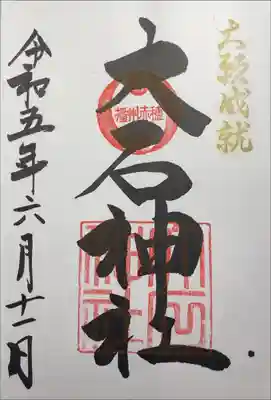 大願成就
播州赤穂
大石神社
令和五年六月十一日